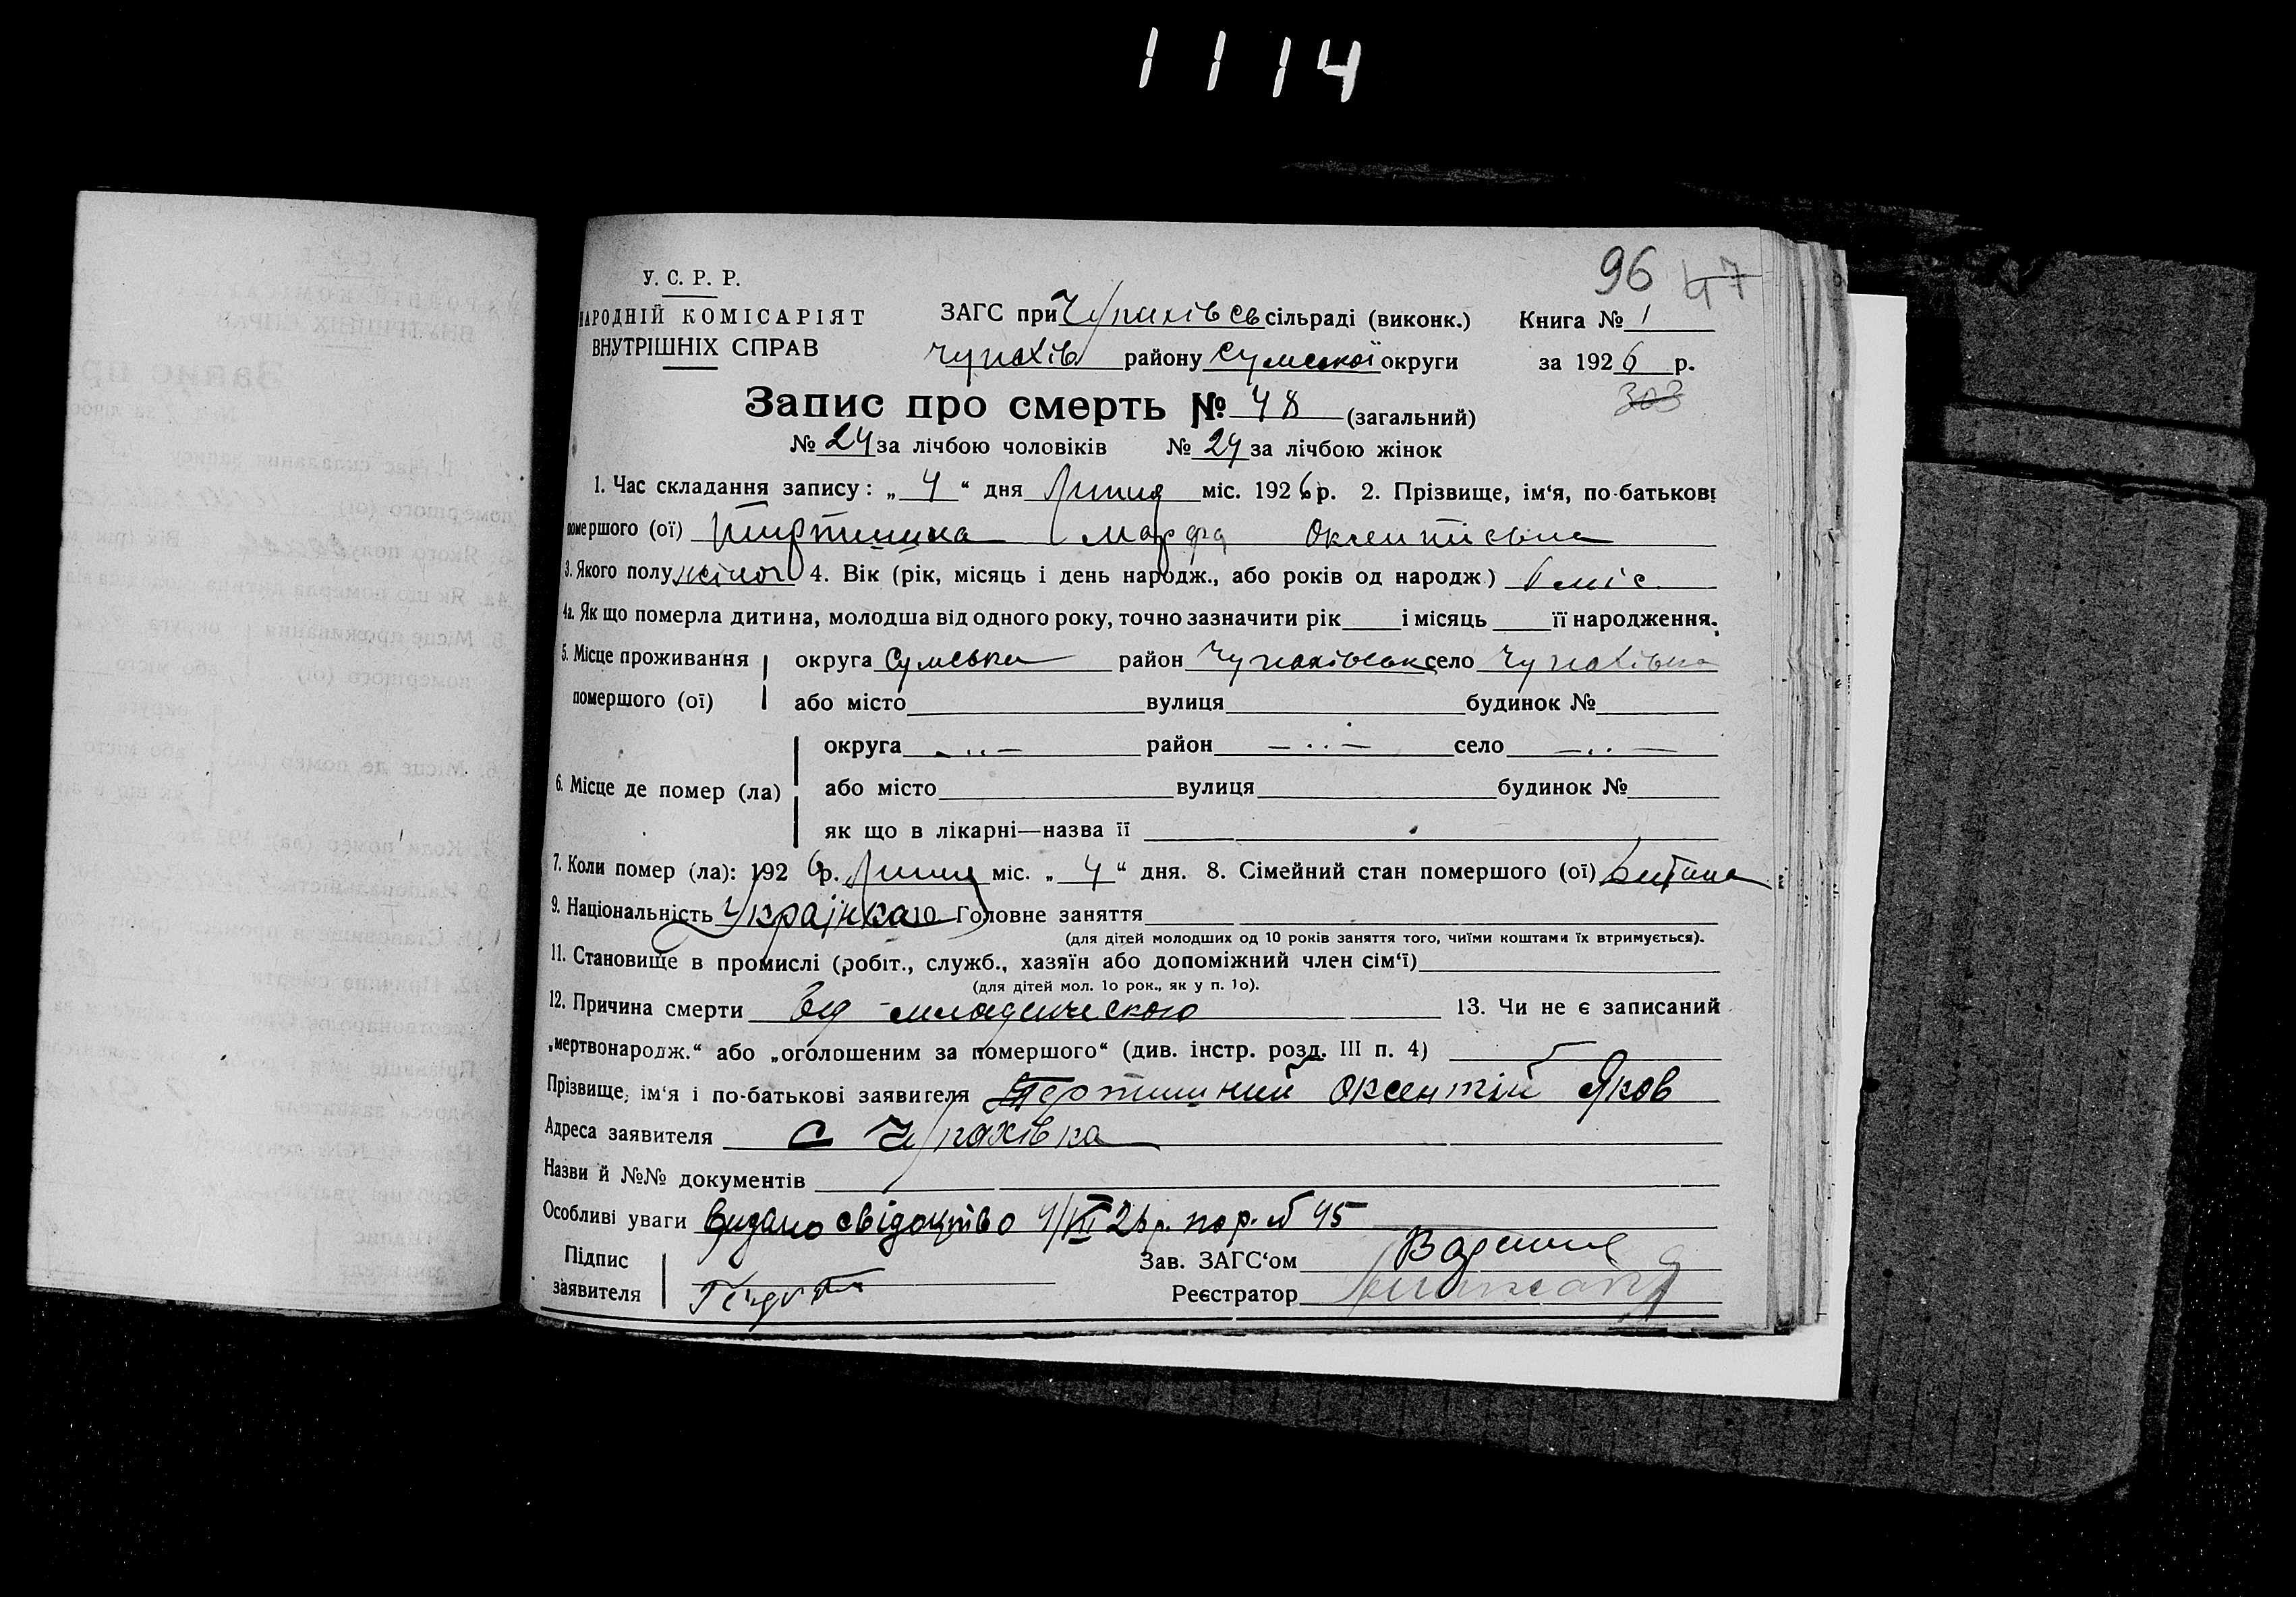 1114
96 47
У. С. Р. Р.
НАРОДНІЙ КОМІСАРІЯТ
ВНУТРІШНІХ СПРАВ
ЗАГС при Чупахівсь сільраді (виконк.) Книга № 1
Чупахів району Сумської округи за 1926 р.
303
Запис про смерть № 48 (загальний)
№ 24 за лічбою чоловіків № 24 за лічбою жінок
1. Час складання запису: „ 4 “ дня Липня міс. 1926 р. 2. Прізвище, ім‘я, по-батькові
помершого (ої) Марфа Оксентіевна
3. Якого полу жіноч 4. Вік (рік, місяць і день народж., або років од народж.) міс.
4а. Як що померла дитина, молодша від одного року, точно зазначити рік і місяць її народження.
5. Місце проживання помершого (ої) округа Сумська район Чупахівськ село Чупахівка
або місто вулиця будинок №
6. Місце де помер (ла) округа — „ — район — „ — село — „ —
або місто вулиця будинок №
як що в лікарні—назва її
7. Коли помер (ла): 1926 р. Липня міс. „ 4 “ дня. 8. Сімейний стан помершого (ої) Дитина
9. Національність Українка 10. Головне заняття
(для дітей молодших од 10 років заняття того, чиїми коштами їх втримується).
11. Становище в промислі (робіт., служб., хазяїн або допоміжний член сім‘ї)
(для дітей мол. 1о рок., як у п. 1о).
12. Причина смерти Від младенческого 13. Чи не є записаний
„мертвонародж.“ або „оголошеним за помершого“ (див. інстр. розд. III п. 4)
Прізвище, ім‘я і по-батькові заявителя Тертишний Оксентій Яков
Адреса заявителя с Чупахівка
Назви й №№ документів
Особливі уваги Видано свідоцтво 4/VII 26 р. по р. № 45
Підпис заявителя
Зав. ЗАГС‘ом
Реєстратор